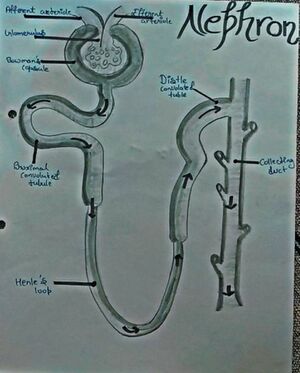 Nephron
Afferent arteriole
Efferent
arteriole
Glomerulus
Bowman's
capsule
Proximal
convoluted
tubule
Henle's
loop
Distle
convoluted
tuble
Collecting
duct